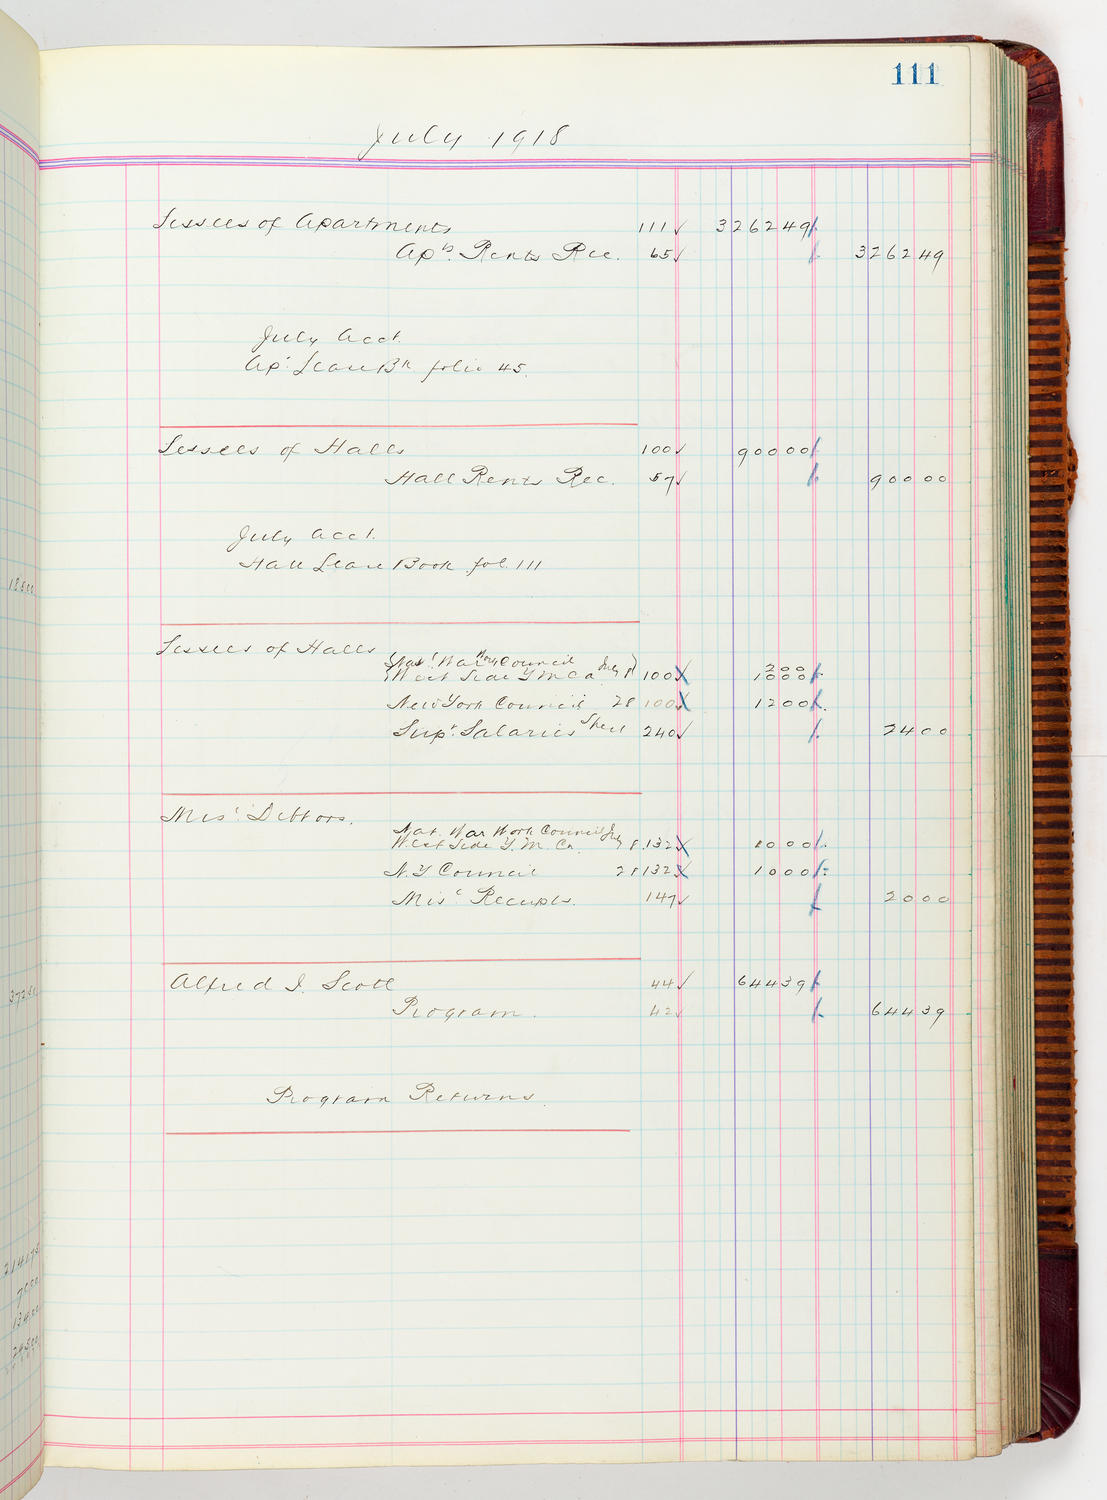 111
July 1918
Lessees of Apartments 111 ✓ 3262 49
Apts. Rents Rec. 65 ✓ 3262 49
July Acct.
Apt. Lease Bk folio 45.
Lessees of Halls 100 ✓ 900 00
Hall Rents Rec. 57 ✓ 900 00
July Acct.
Hall Lease Book fol. 111
Lessees of Halls
Nat. War Work Council July 2 00
West Side Y M C a 100 10 00
New York Council 28 100 12 00
Supt. Salaries Sheet 240 ✓ 24 00
Misc. Debtors.
Nat. War Work Council July
West Side Y. M. Ca 8 132 10 00
N. Y Council 28 132 10 00
Misc Receipts. 147 ✓ 20 00
Alfred I. Scott 44 ✓ 644 39
Program. 42 ✓ 644 39
Program Returns.